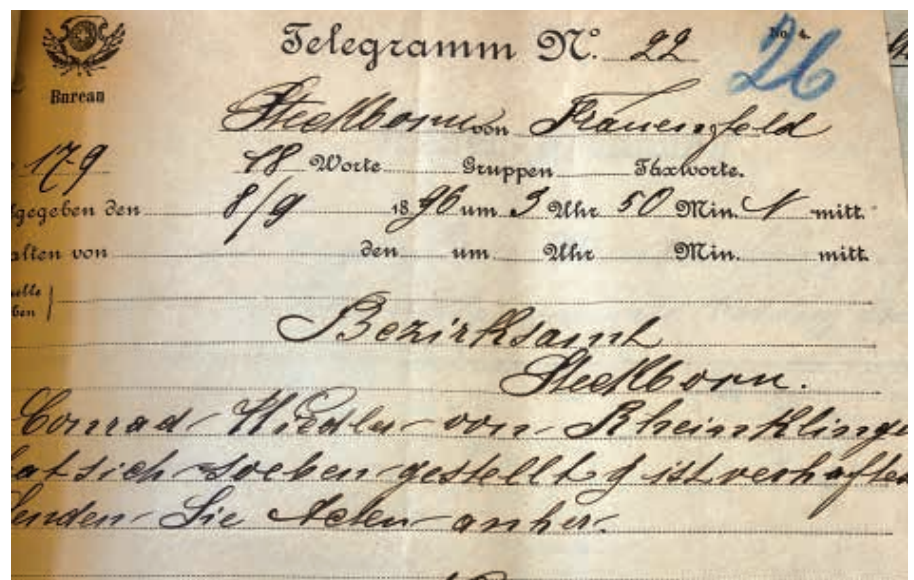 Telegramm No. 22
No 4.
26
Bureau
Steckborn von Frauenfeld
179 18 Worte Gruppen Taxworte.
fgegeben den 8/9 1896 um 3 Uhr 50 Min. N mitt.
alten von den um Uhr Min. mitt.
uelle
ben
Bezirksamt
Steckborn.
Conrad von Rheinklinge
at sich soeben gestellt & ist verhaftet
enden Sie Acten anher.